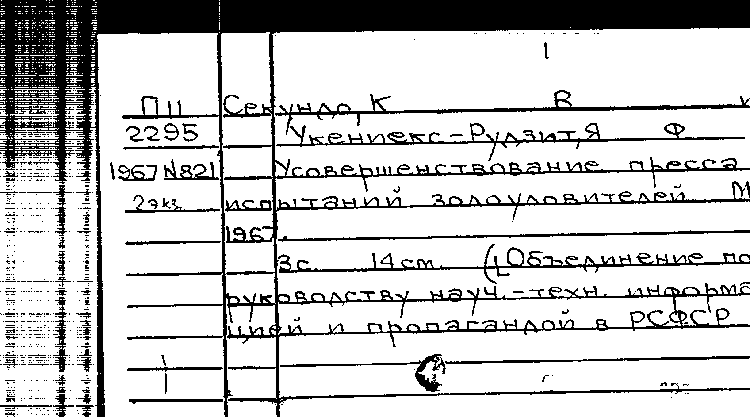 П11 Секундо, К В
2295 Укениекс-Рудзит, Я Ф
1967 N821 Усовершенствование пресса
2 экз. испытаний золоуловителей М
1967.
3 с. 14 см (Объединение по
руководству науч.-техн. информа
цией и пропагандой в РСФСР